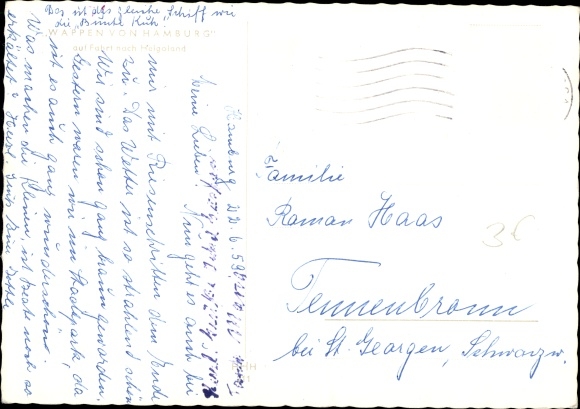 Das ist das gleiche Schiff wie
die "Bunte Kuh"!
"WAPPEN VON HAMBURG"
auf Fahrt nach Helgoland
Hamburg 22.6.59
Meine Lieben! Nun geht es auch bei
mir mit Riesenschritten dem Ende
zu. Das Wetter ist so strahlend schön
Wir sind schon ganz braun geworden.
Gestern waren wir im Stadtpark, da
ist es auch ganz wunderschön.
Was machen die Kleinen, ist Beate noch so
erkältet?
Familie
Roman Haas
Tennenbronn
bei St. Georgen, Schwarzw.
36